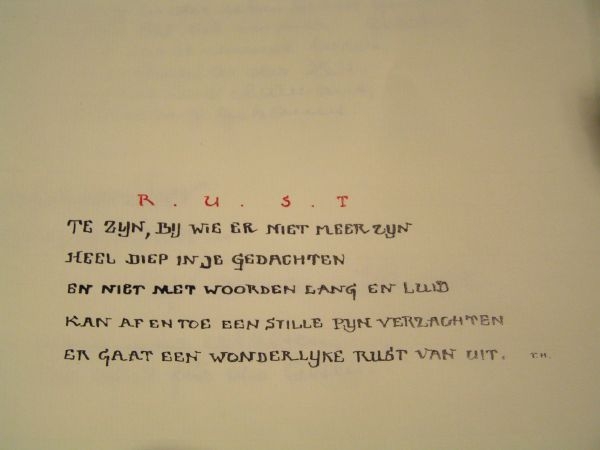 R . U . S . T
TE ZIJN, BIJ WIE ER NIET MEER ZIJN
HEEL DIEP IN JE GEDACHTEN
EN NIET MET WOORDEN LANG EN LUID
KAN AF EN TOE EEN STILLE PIJN VERZACHTEN
ER GAAT EEN WONDERLIJKE RUST VAN UIT. T.H.